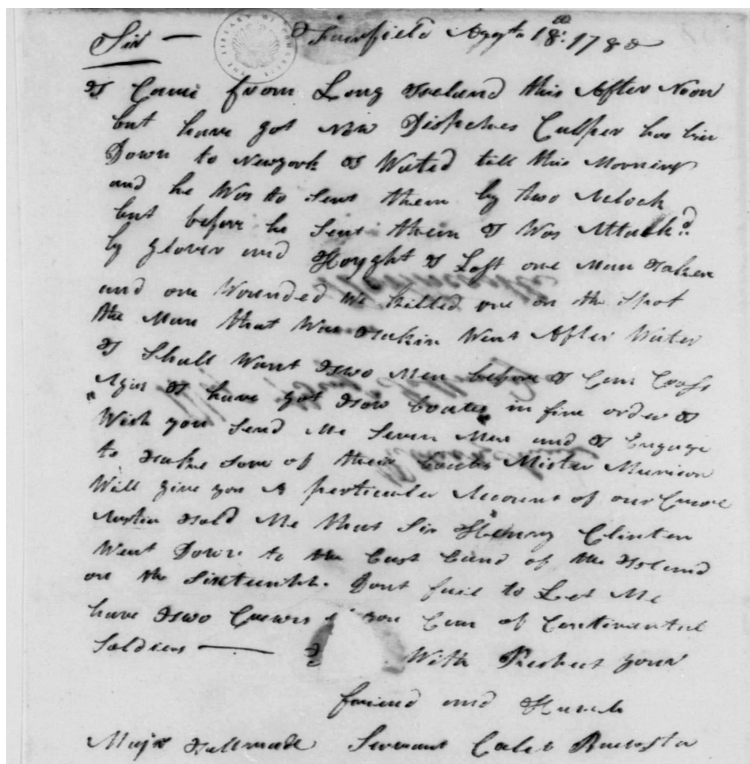 Sir — Fairfield Augt. 18th: 1780
I Came from Long Iseland this After Noon
but have got now Dispeches Culper has bin
Down to Newyork I Wated till this Morning
and he Was to Sent them by two Aclock
but before he Sent them I Was Attackd.
by glover and Hoyght I Lost one Man Taken
and one Wounded We killed one on the Spot
the Man that Was Taken Went After Water
I Shall Want Two Men before I Can Cross
Agin I have got Tow boates in fine order I
Wish you Send Me Seven Men and I Engage
to Take Som of thear boates Mister Muirson
Will give you A perticular Account of our Cruse
Austin Told Me that Sir Henry Clinten
Went Down to the East Eand of the Iseland
on the Sixteenth. Dont fail to Let Me
have Two Crewes if you Can of Continental
Soldiers — With Respect your
friend and Humb
Majr Tallmade Servant Caleb Brewster